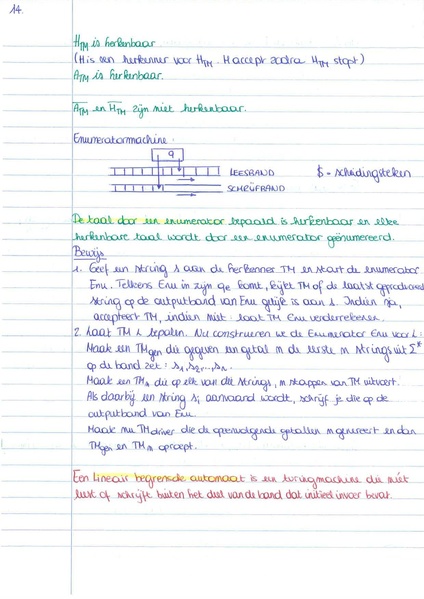 14.
H_TM is herkenbaar
(H is een herkenner voor H_TM. H accept zodra H_TM stopt)
A_TM is herkenbaar.
A̅_TM en H̅_TM zijn niet herkenbaar.
Enumeratormachine:
q
LEESBAND
$ = scheidingsteken
SCHRIJFBAND
De taal door een enumerator bepaald is herkenbaar en elke
herkenbare taal wordt door een enumerator geënumereerd.
Bewijs
1. Geef een string s aan de herkenner TM en start de enumerator
Enu. Telkens Enu in zijn qe komt, kijkt TM of de laatst geproduceerde
string op de outputband van Enu gelijk is aan s. Indien ja,
accepteert TM, indien niet: laat TM Enu verderrekenen.
2. Laat TM L bepalen. Nu construeren we de Enumerator Enu voor L:
Maak een TM_gen die gegeven een getal n de eerste n strings uit Σ*
op de band zet: s1, s2, ..., sn.
Maak een TM_n die op elk van die strings, n stappen van TM uitvoert.
Als daarbij een string si aanvaard wordt, schrijf je die op de
outputband van Enu.
Maak nu TM_driver die de opeenvolgende getallen n genereert en dan
TM_gen en TM_n oproept.
Een lineair begrensde automaat is een turingmachine die niet
leest of schrijft buiten het deel van de band dat initieel invoer bevat.